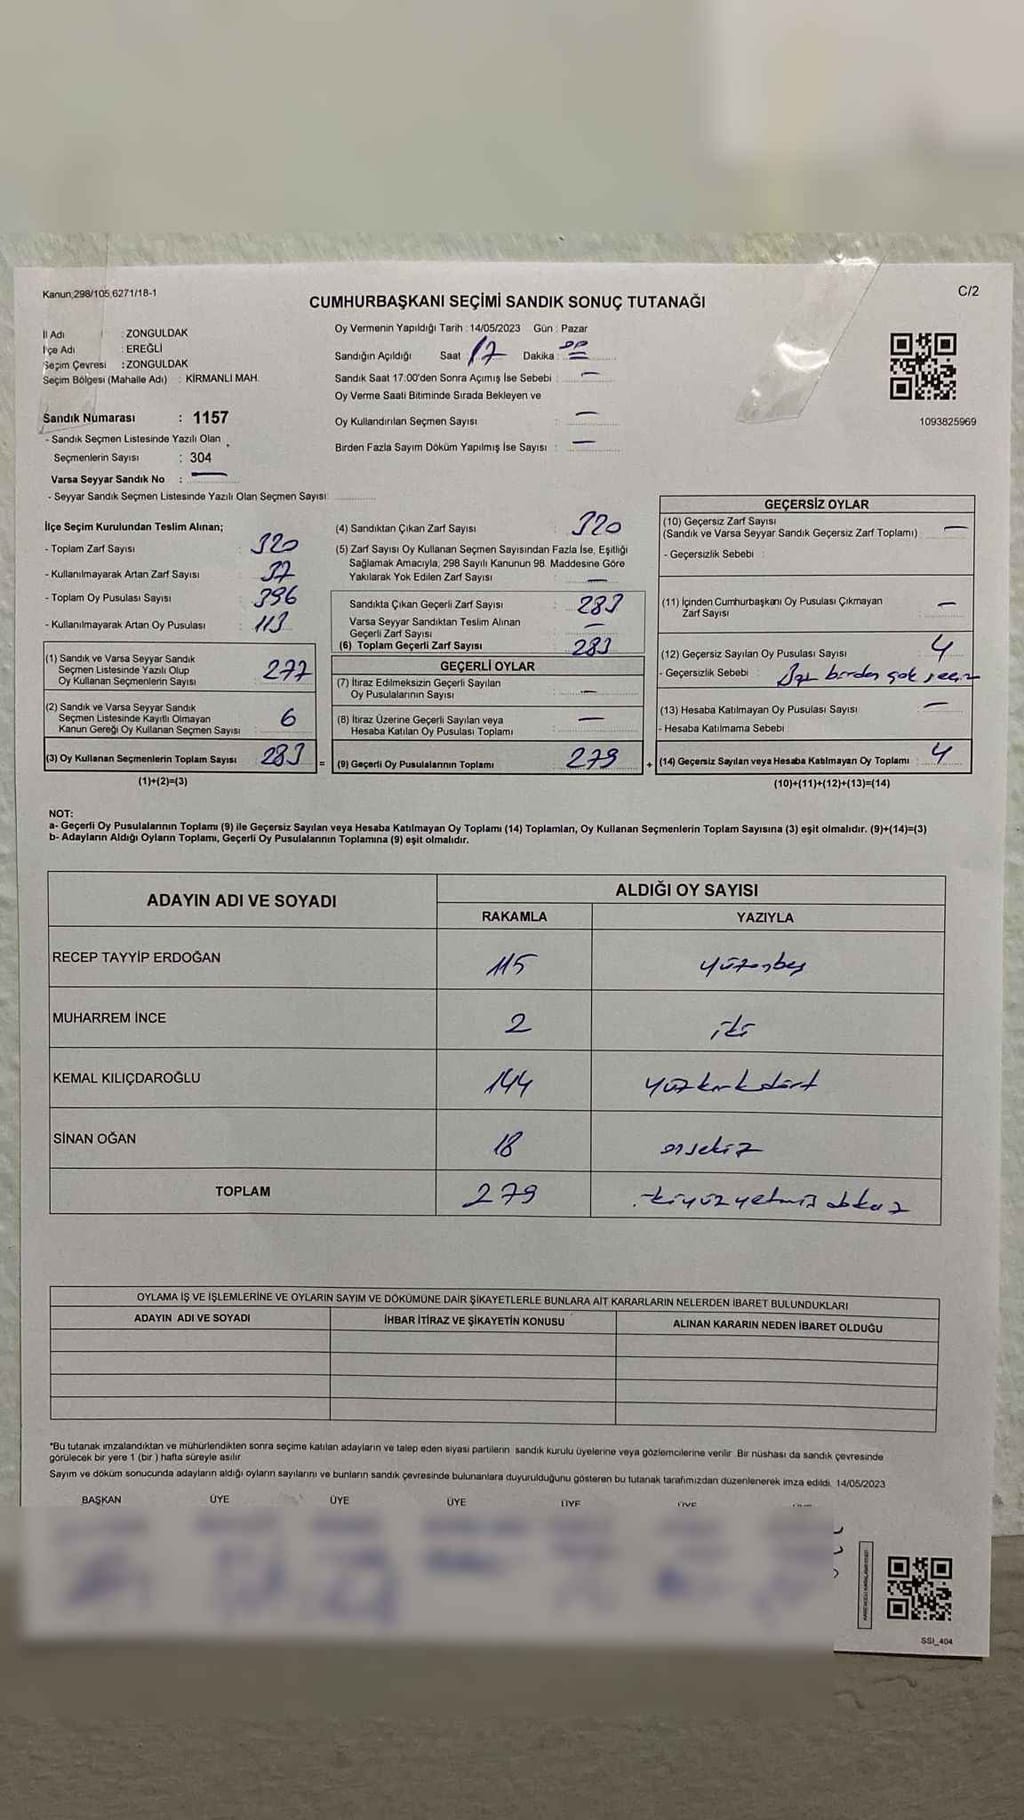 Kanun;298/105,6271/18-1
C/2
CUMHURBAŞKANI SEÇİMİ SANDIK SONUÇ TUTANAĞI
İl Adı : ZONGULDAK
İlçe Adı : EREĞLİ
Seçim Çevresi : ZONGULDAK
Seçim Bölgesi (Mahalle Adı) : KİRMANLI MAH.
Sandık Numarası : 1157
- Sandık Seçmen Listesinde Yazılı Olan
Seçmenlerin Sayısı : 304
Varsa Seyyar Sandık No : —
- Seyyar Sandık Seçmen Listesinde Yazılı Olan Seçmen Sayısı:
Oy Vermenin Yapıldığı Tarih : 14/05/2023 Gün : Pazar
Sandığın Açıldığı Saat 17 Dakika : 00
Sandık Saat 17:00'den Sonra Açımış İse Sebebi : —
Oy Verme Saati Bitiminde Sırada Bekleyen ve
Oy Kullandırılan Seçmen Sayısı : —
Birden Fazla Sayım Döküm Yapılmış İse Sayısı : —
1093825969
İlçe Seçim Kurulundan Teslim Alınan;
- Toplam Zarf Sayısı : 320
- Kullanılmayarak Artan Zarf Sayısı : 37
- Toplam Oy Pusulası Sayısı : 396
- Kullanılmayarak Artan Oy Pusulası : 113
(1) Sandık ve Varsa Seyyar Sandık
Seçmen Listesinde Yazılı Olup
Oy Kullanan Seçmenlerin Sayısı 277
(2) Sandık ve Varsa Seyyar Sandık
Seçmen Listesinde Kayıtlı Olmayan
Kanun Gereği Oy Kullanan Seçmen Sayısı 6
(3) Oy Kullanan Seçmenlerin Toplam Sayısı 283 =
(1)+(2)=(3)
(4) Sandıktan Çıkan Zarf Sayısı : 320
(5) Zarf Sayısı Oy Kullanan Seçmen Sayısından Fazla İse, Eşitliği
Sağlamak Amacıyla, 298 Sayılı Kanunun 98. Maddesine Göre
Yakılarak Yok Edilen Zarf Sayısı : —
Sandıkta Çıkan Geçerli Zarf Sayısı : 283
Varsa Seyyar Sandıktan Teslim Alınan
Geçerli Zarf Sayısı : —
(6) Toplam Geçerli Zarf Sayısı : 283
GEÇERLİ OYLAR
(7) İtiraz Edilmeksizin Geçerli Sayılan
Oy Pusulalarının Sayısı : —
(8) İtiraz Üzerine Geçerli Sayılan veya
Hesaba Katılan Oy Pusulası Toplamı : —
(9) Geçerli Oy Pusulalarının Toplamı : 279 +
GEÇERSİZ OYLAR
(10) Geçersiz Zarf Sayısı
(Sandık ve Varsa Seyyar Sandık Geçersiz Zarf Toplamı) : —
- Geçersizlik Sebebi :
(11) İçinden Cumhurbaşkanı Oy Pusulası Çıkmayan
Zarf Sayısı : —
(12) Geçersiz Sayılan Oy Pusulası Sayısı : 4
- Geçersizlik Sebebi : birden çok
(13) Hesaba Katılmayan Oy Pusulası Sayısı : —
- Hesaba Katılmama Sebebi :
(14) Geçersiz Sayılan veya Hesaba Katılmayan Oy Toplamı : 4
(10)+(11)+(12)+(13)=(14)
NOT:
a- Geçerli Oy Pusulalarının Toplamı (9) ile Geçersiz Sayılan veya Hesaba Katılmayan Oy Toplamı (14) Toplamları, Oy Kullanan Seçmenlerin Toplam Sayısına (3) eşit olmalıdır. (9)+(14)=(3)
b- Adayların Aldığı Oyların Toplamı, Geçerli Oy Pusulalarının Toplamına (9) eşit olmalıdır.
ADAYIN ADI VE SOYADI ALDIĞI OY SAYISI
RAKAMLA YAZIYLA
RECEP TAYYİP ERDOĞAN 115 yüzonbeş
MUHARREM İNCE 2 iki
KEMAL KILIÇDAROĞLU 144 yüzkırkdört
SİNAN OĞAN 18 onsekiz
TOPLAM 279 ikiyüzyetmiş dokuz
OYLAMA İŞ VE İŞLEMLERİNE VE OYLARIN SAYIM VE DÖKÜMÜNE DAİR ŞİKAYETLERLE BUNLARA AİT KARARLARIN NELERDEN İBARET BULUNDUKLARI
ADAYIN ADI VE SOYADI İHBAR İTİRAZ VE ŞİKAYETİN KONUSU ALINAN KARARIN NEDEN İBARET OLDUĞU
*Bu tutanak imzalandıktan ve mühürlendikten sonra seçime katılan adayların ve talep eden siyasi partilerin sandık kurulu üyelerine veya gözlemcilerine verilir. Bir nüshası da sandık çevresinde
görülecek bir yere 1 (bir ) hafta süreyle asılır.
Sayım ve döküm sonucunda adayların aldığı oyların sayılarını ve bunların sandık çevresinde bulunanlara duyurulduğunu gösteren bu tutanak tarafımızdan düzenlenerek imza edildi. 14/05/2023
BAŞKAN ÜYE ÜYE ÜYE ÜYE ÜYE
SSI_404